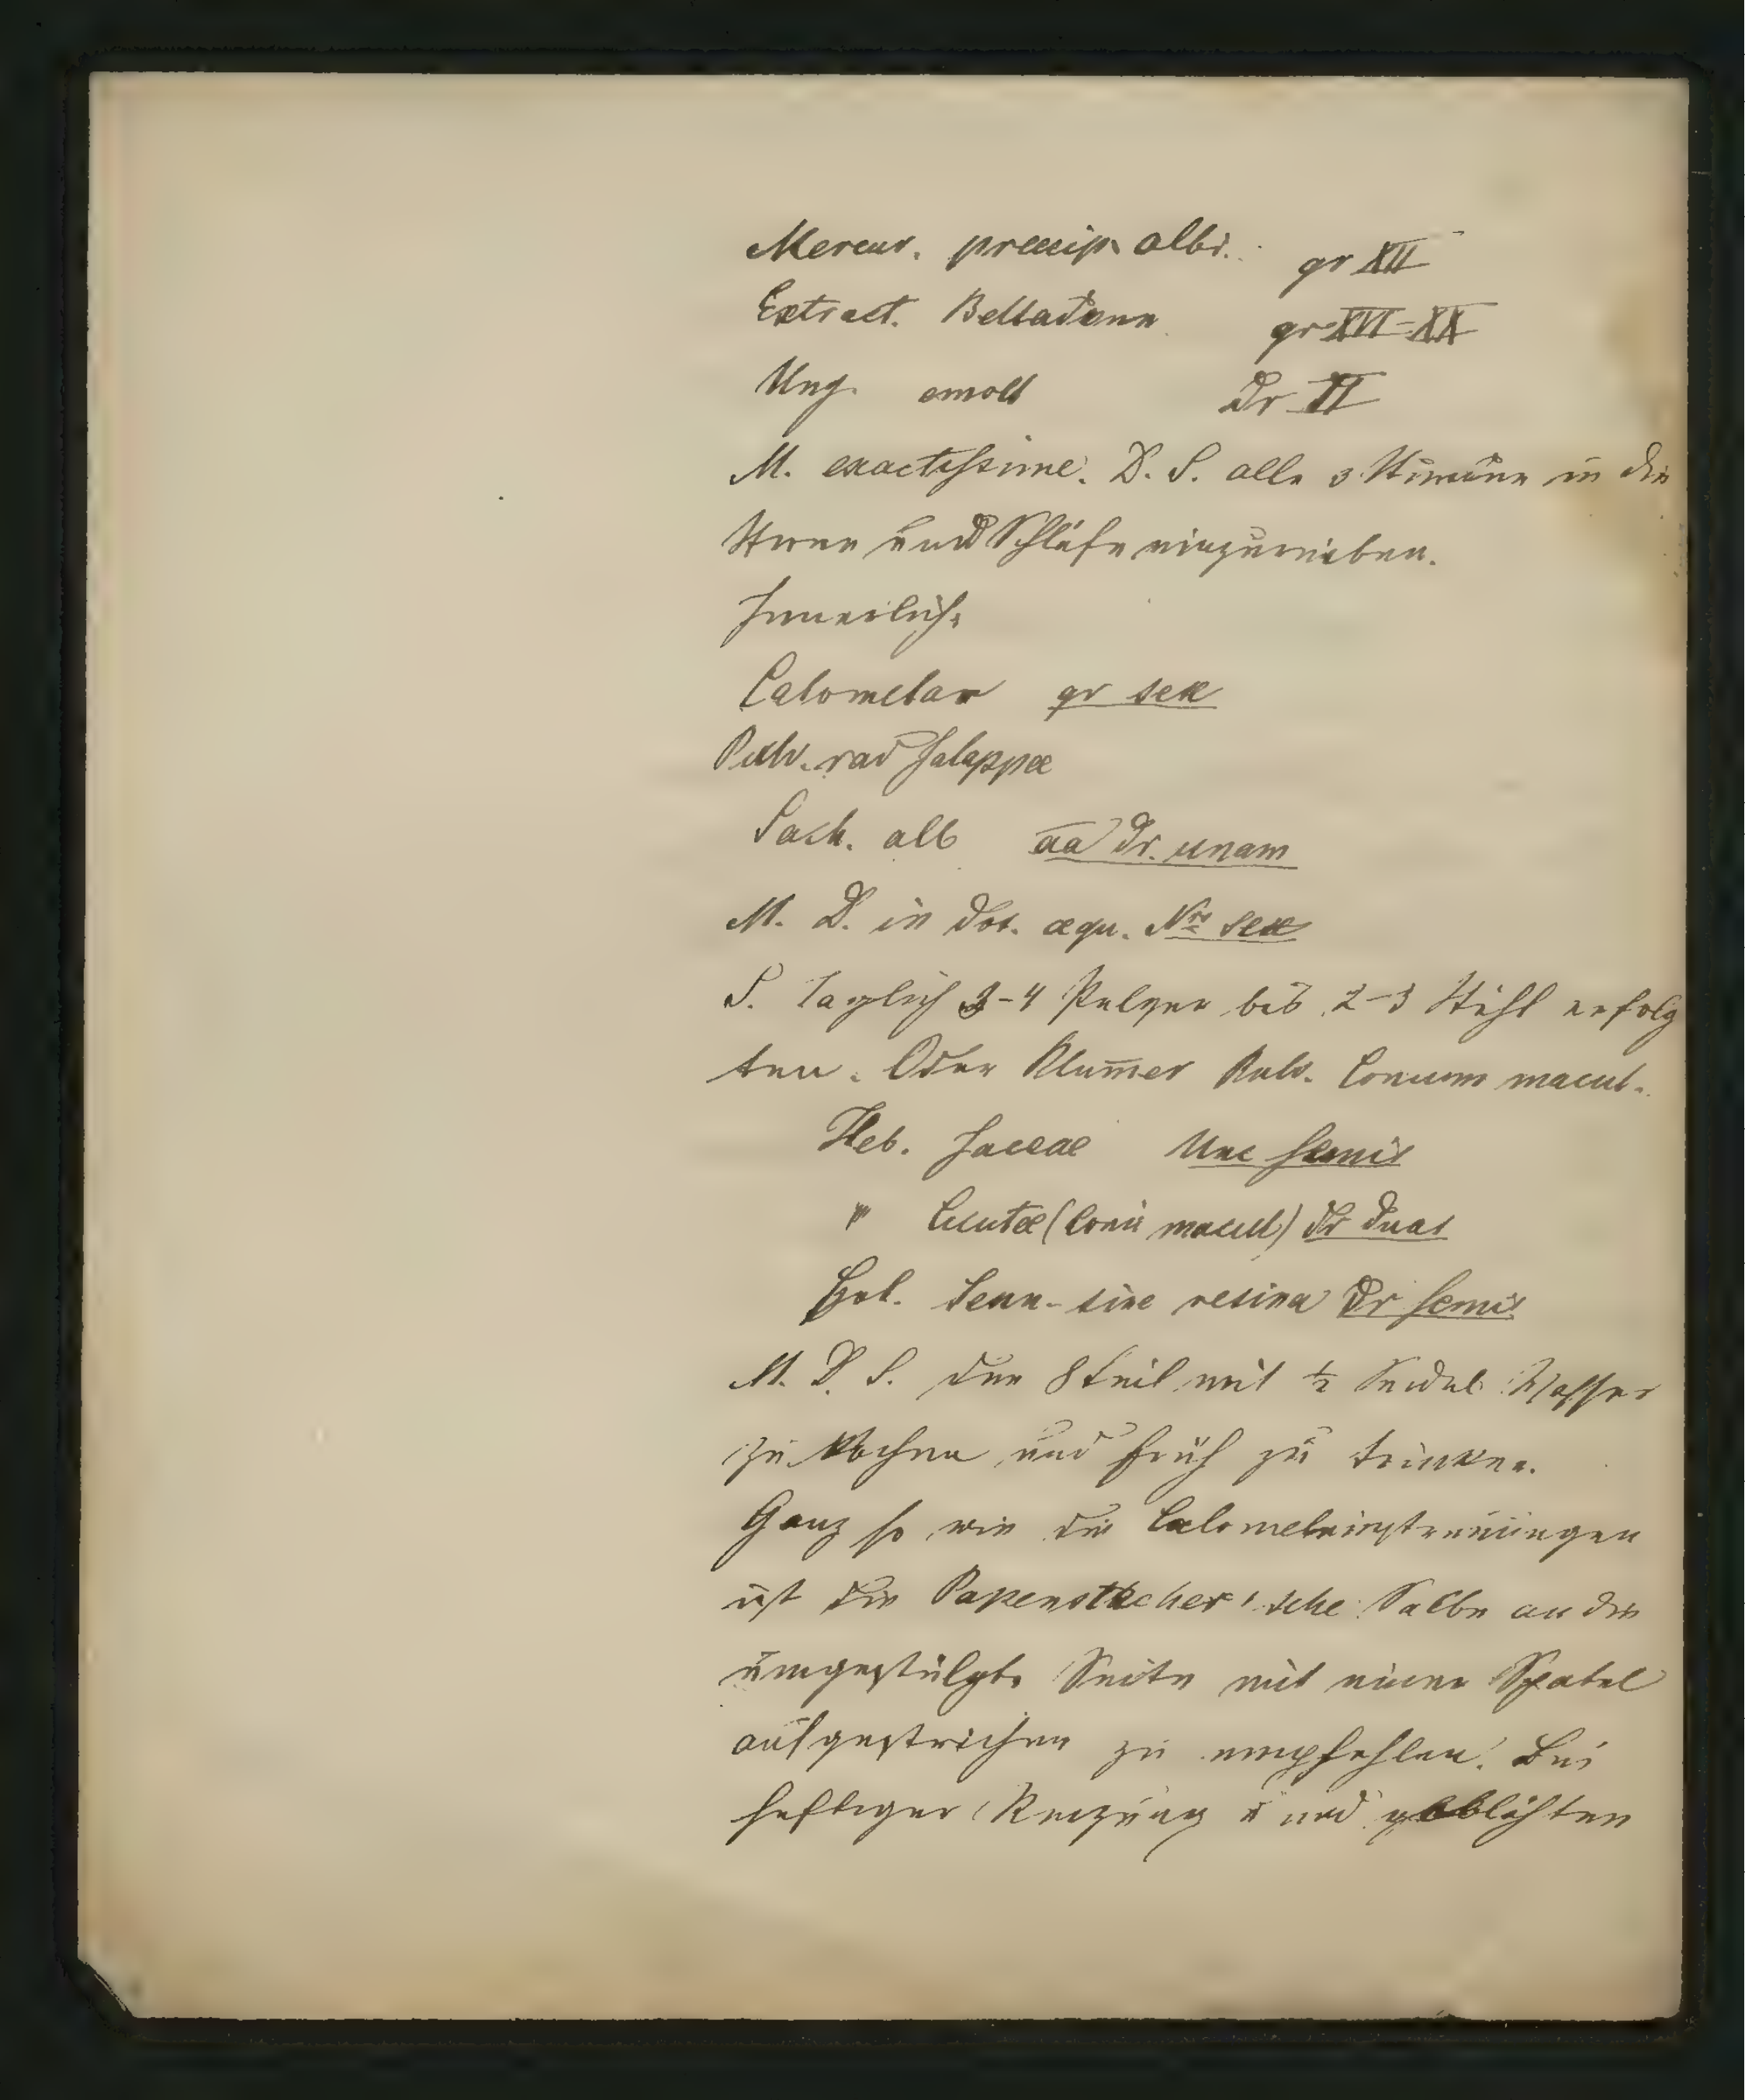 Mercur. precip. albi. gr XII
Extract. Belladonn gr XVI-XX
Ung. emoll Dr II
M. exactissime. D. S. alle 3 Stunden in die
Stirne und Schläfe einzureiben.
Innerlich.
Calomelan gr sex
Pulv. rad Jalappae
Sach. alb aa dr. unam
M. D. in dos. aequ. Nro sex
S. Täglich 3-4 Pulver bis 2-3 Stühl erfolg
ten. Oder Plumer Pulv. Conium macul.
Heb. Jaceae Unc semis
" Cicutae (Conii macul) dr duas
Fol. Senn. sine resina Dr semis
M. D. S. den 8 Teil mit ½ Seidel Wasser
zu kochen und früh zu trinken.
Ganz so wie die Calomeleinstreuungen
ist die Papenstecher'sche Salbe an die
umgestülpte Seite mit einem Spatel
aufgestrichen zu empfehlen. Bei
heftiger Reizung und